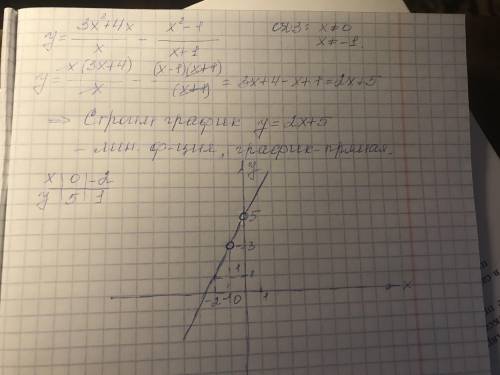 y = (3x²+4x)/x − (x²−1)/(x+1) ОДЗ: x≠0
x≠−1.
y = x(3x+4)/x − (x−1)(x+1)/(x+1) = 3x+4−x+1=2x+5
⇒ Строим график y=2x+5
– лин. ф-ция, график-прямая.
x | 0 | −2
y | 5 | 1
y
5
3
1 1
−2 −1 0 1 x